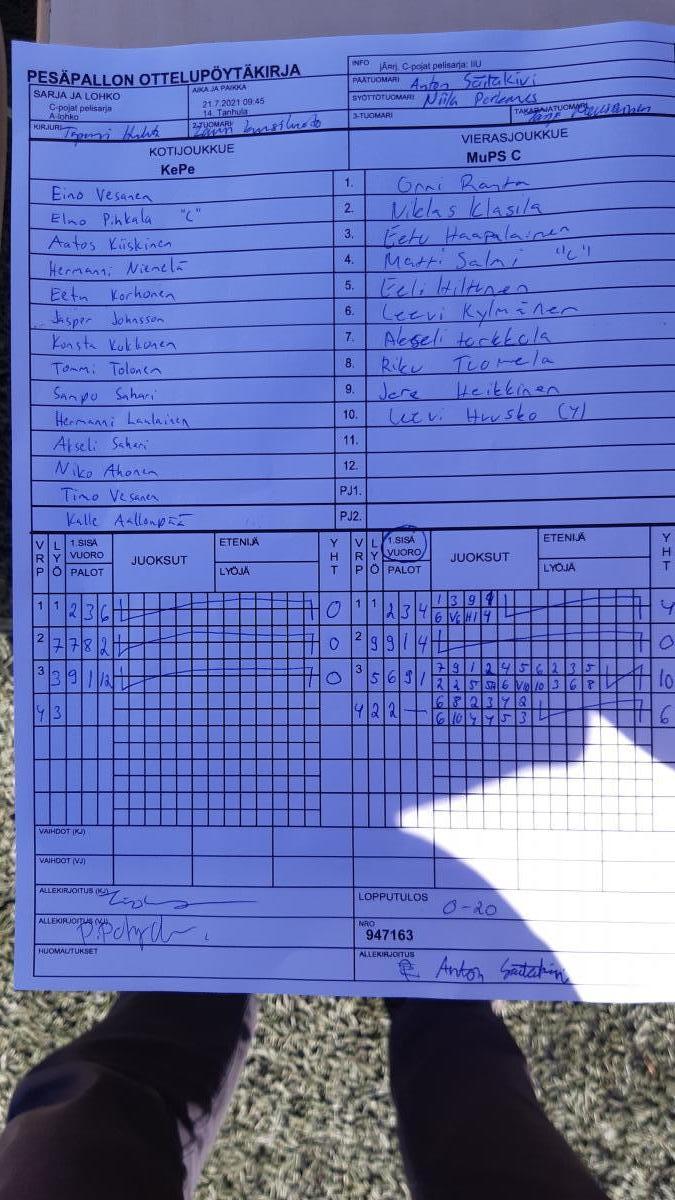 PESÄPALLON OTTELUPÖYTÄKIRJA
SARJA JA LOHKO
C-pojat pelisarja
A-lohko
AIKA JA PAIKKA
21.7.2021 09:45
14. Tanhula
KIRJURI
2-TUOMARI
INFO jÄnrj. C-pojat pelisarja: IIU
PÄÄTUOMARI Anton Säitäkivi
SYÖTTÖTUOMARI Niila
3-TUOMARI
TAKARAJATUOMARI
KOTIJOUKKUE
KePe
VIERASJOUKKUE
MuPS C
Eino Vesanen 1. Onni Ranta
Elmo Pihkala "C" 2. Niklas Klasila
Aatos Kiiskinen 3. Eetu Haapalainen
Hermanni Niemelä 4. Matti Salmi "C"
Eetu Korhonen 5. Eeli Hiltunen
Jasper Johnsson 6. Leevi Kylmänen
Konsta Kokkonen 7. Akseli
Tommi Tolonen 8. Riku Tuomela
Sampo Sahari 9. Jere Heikkinen
Hermanni Laulainen 10. Leevi Huusko (Y)
Akseli Sahari 11.
Niko Ahonen 12.
Timo Vesanen PJ1.
Kalle Aallonpää PJ2.
VRP LYÖ 1.SISÄ VUORO PALOT JUOKSUT ETENIJÄ LYÖJÄ YHT VRP LYÖ 1.SISÄ VUORO PALOT JUOKSUT ETENIJÄ LYÖJÄ YHT
1 1 2 3 6 0 1 1 2 3 4 1 3 9 4 4
6 V6 H1 4
2 7 7 8 2 0 2 9 9 1 4 0
3 3 9 1 12 0 3 5 6 9 1 7 9 1 2 4 5 6 2 3 5 10
2 2 5 5 6 V10 10 3 6 8
4 3 4 2 2 — 6 8 2 3 4 2 6
6 10 4 4 5 3
VAIHDOT (KJ)
VAIHDOT (VJ)
ALLEKIRJOITUS (KJ)
ALLEKIRJOITUS (VJ)
HUOMAUTUKSET
LOPPUTULOS
0-20
NRO
947163
ALLEKIRJOITUS
Anton Säitäkivi